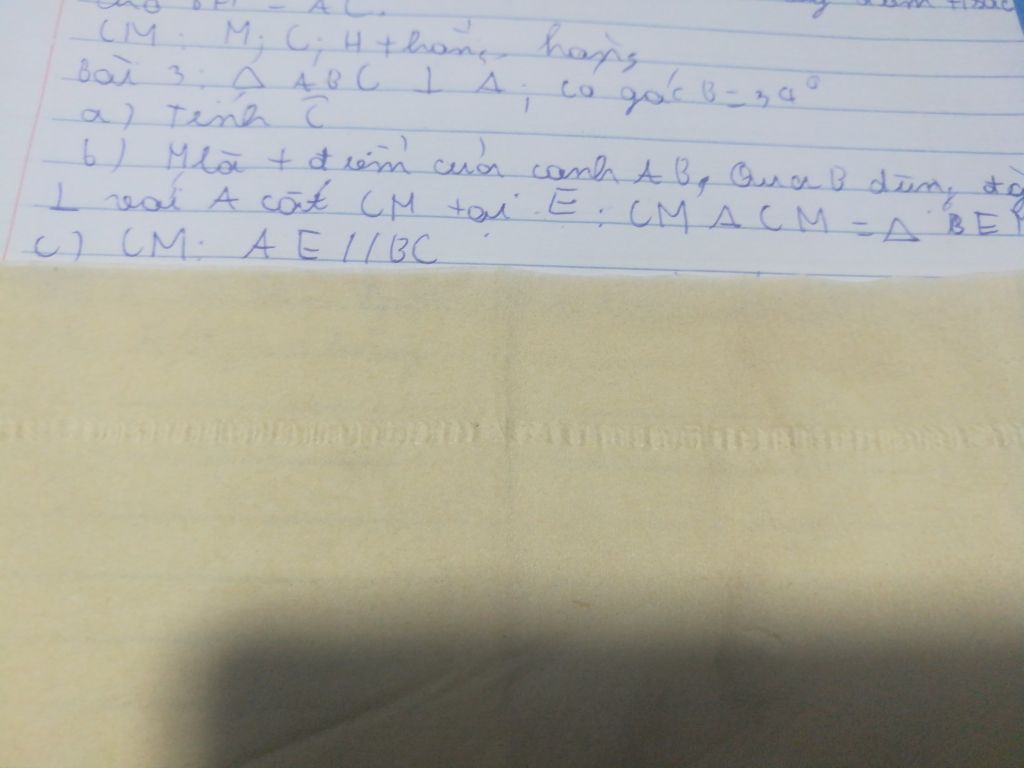 = AC.
CM: M; C; H thẳng hàng
Bài 3: Δ ABC ⊥ A; có góc B = 34°
a) Tính C
b) M là t điểm của cạnh AB, Qua B dùng
⊥ với A cắt CM tại E. CM Δ CM = Δ BE
c) CM: AE // BC